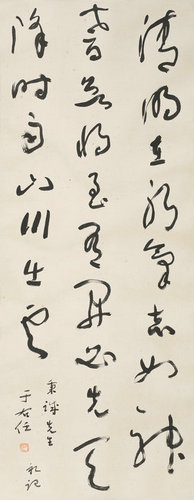 清明在躬氣志如神
嗜欲將至有開必先天
降時雨山川出雲
礼記
秉 先生
于右任